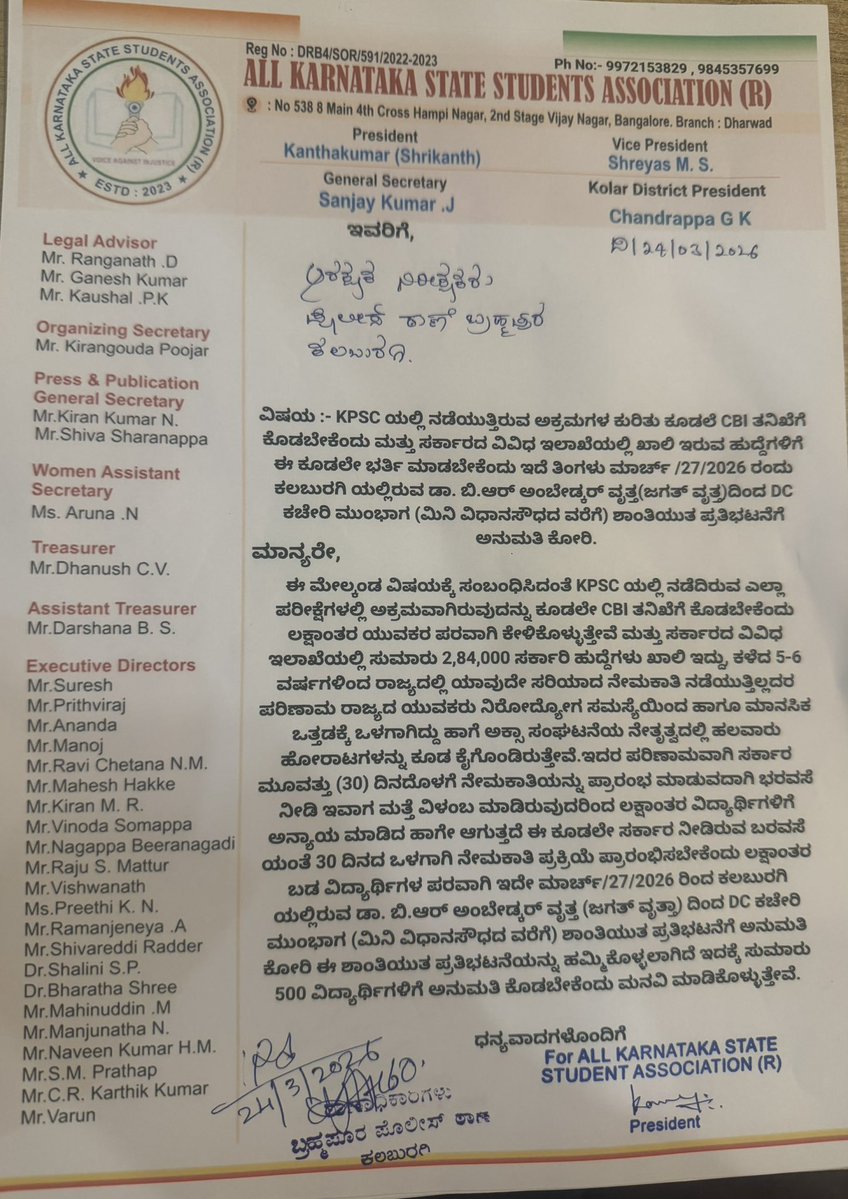 ALL KARNATAKA STATE STUDENTS ASSOCIATION (R)
VOICE AGAINST INJUSTICE
ESTD : 2023
Reg No : DRB4/SOR/591/2022-2023
Ph No:- 9972153829 , 9845357699
ALL KARNATAKA STATE STUDENTS ASSOCIATION (R)
: No 538 8 Main 4th Cross Hampi Nagar, 2nd Stage Vijay Nagar, Bangalore. Branch : Dharwad
President
Kanthakumar (Shrikanth)
Vice President
Shreyas M. S.
General Secretary
Sanjay Kumar .J
Kolar District President
Chandrappa G K
Legal Advisor
Mr. Ranganath .D
Mr. Ganesh Kumar
Mr. Kaushal .P.K
Organizing Secretary
Mr. Kirangouda Poojar
Press & Publication
General Secretary
Mr.Kiran Kumar N.
Mr.Shiva Sharanappa
Women Assistant
Secretary
Ms. Aruna .N
Treasurer
Mr.Dhanush C.V.
Assistant Treasurer
Mr.Darshana B. S.
Executive Directors
Mr.Suresh
Mr.Prithviraj
Mr.Ananda
Mr.Manoj
Mr.Ravi Chetana N.M.
Mr.Mahesh Hakke
Mr.Kiran M. R.
Mr.Vinoda Somappa
Mr.Nagappa Beeranagadi
Mr.Raju S. Mattur
Mr.Vishwanath
Ms.Preethi K. N.
Mr.Ramanjeneya .A
Mr.Shivareddi Radder
Dr.Shalini S.P.
Dr.Bharatha Shree
Mr.Mahinuddin .M
Mr.Manjunatha N.
Mr.Naveen Kumar H.M.
Mr.S.M. Prathap
Mr.C.R. Karthik Kumar
Mr.Varun
ಇವರಿಗೆ,
ದಿ/24/03/2026
ನಿರೀಕ್ಷಕರು
ಪೊಲೀಸ್ ಠಾಣೆ ಬ್ರಹ್ಮಪುರ
ಕಲಬುರಗಿ.
ವಿಷಯ :- KPSC ಯಲ್ಲಿ ನಡೆಯುತ್ತಿರುವ ಅಕ್ರಮಗಳ ಕುರಿತು ಕೂಡಲೆ CBI ತನಿಖೆಗೆ
ಕೊಡಬೇಕೆಂದು ಮತ್ತು ಸರ್ಕಾರದ ವಿವಿಧ ಇಲಾಖೆಯಲ್ಲಿ ಖಾಲಿ ಇರುವ ಹುದ್ದೆಗಳಿಗೆ
ಈ ಕೂಡಲೇ ಭರ್ತಿ ಮಾಡಬೇಕೆಂದು ಇದೆ ತಿಂಗಳು ಮಾರ್ಚ್ /27/2026 ರಂದು
ಕಲಬುರಗಿ ಯಲ್ಲಿರುವ ಡಾ. ಬಿ.ಆರ್ ಅಂಬೇಡ್ಕರ್ ವೃತ್ತ(ಜಗತ್ ವೃತ್ತ)ದಿಂದ DC
ಕಚೇರಿ ಮುಂಭಾಗ (ಮಿನಿ ವಿಧಾನಸೌಧದ ವರೆಗೆ) ಶಾಂತಿಯುತ ಪ್ರತಿಭಟನೆಗೆ
ಅನುಮತಿ ಕೋರಿ.
ಮಾನ್ಯರೇ,
ಈ ಮೇಲ್ಕಂಡ ವಿಷಯಕ್ಕೆ ಸಂಬಂಧಿಸಿದಂತೆ KPSC ಯಲ್ಲಿ ನಡೆದಿರುವ ಎಲ್ಲಾ
ಪರೀಕ್ಷೆಗಳಲ್ಲಿ ಅಕ್ರಮವಾಗಿರುವುದನ್ನು ಕೂಡಲೇ CBI ತನಿಖೆಗೆ ಕೊಡಬೇಕೆಂದು
ಲಕ್ಷಾಂತರ ಯುವಕರ ಪರವಾಗಿ ಕೇಳಿಕೊಳ್ಳುತ್ತೇವೆ ಮತ್ತು ಸರ್ಕಾರದ ವಿವಿಧ
ಇಲಾಖೆಯಲ್ಲಿ ಸುಮಾರು 2,84,000 ಸರ್ಕಾರಿ ಹುದ್ದೆಗಳು ಖಾಲಿ ಇದ್ದು, ಕಳೆದ 5-6
ವರ್ಷಗಳಿಂದ ರಾಜ್ಯದಲ್ಲಿ ಯಾವುದೇ ಸರಿಯಾದ ನೇಮಕಾತಿ ನಡೆಯುತ್ತಿಲ್ಲದರ
ಪರಿಣಾಮ ರಾಜ್ಯದ ಯುವಕರು ನಿರೋದ್ಯೋಗ ಸಮಸ್ಯೆಯಿಂದ ಹಾಗೂ ಮಾನಸಿಕ
ಒತ್ತಡಕ್ಕೆ ಒಳಗಾಗಿದ್ದು ಹಾಗೆ ಅಕ್ಸಾ ಸಂಘಟನೆಯ ನೇತೃತ್ವದಲ್ಲಿ ಹಲವಾರು
ಹೋರಾಟಗಳನ್ನು ಕೂಡ ಕೈಗೊಂಡಿರುತ್ತೇವೆ.ಇದರ ಪರಿಣಾಮವಾಗಿ ಸರ್ಕಾರ
ಮೂವತ್ತು (30) ದಿನದೊಳಗೆ ನೇಮಕಾತಿಯನ್ನು ಪ್ರಾರಂಭ ಮಾಡುವದಾಗಿ ಭರವಸೆ
ನೀಡಿ ಇವಾಗ ಮತ್ತೆ ವಿಳಂಬ ಮಾಡಿರುವುದರಿಂದ ಲಕ್ಷಾಂತರ ವಿದ್ಯಾರ್ಥಿಗಳಿಗೆ
ಅನ್ಯಾಯ ಮಾಡಿದ ಹಾಗೇ ಆಗುತ್ತದೆ ಈ ಕೂಡಲೇ ಸರ್ಕಾರ ನೀಡಿರುವ ಬರವಸೆ
ಯಂತೆ 30 ದಿನದ ಒಳಗಾಗಿ ನೇಮಕಾತಿ ಪ್ರಕ್ರಿಯೆ ಪ್ರಾರಂಭಿಸಬೇಕೆಂದು ಲಕ್ಷಾಂತರ
ಬಡ ವಿದ್ಯಾರ್ಥಿಗಳ ಪರವಾಗಿ ಇದೇ ಮಾರ್ಚ್/27/2026 ರಿಂದ ಕಲಬುರಗಿ
ಯಲ್ಲಿರುವ ಡಾ. ಬಿ.ಆರ್ ಅಂಬೇಡ್ಕರ್ ವೃತ್ತ (ಜಗತ್ ವೃತ್ತಾ) ದಿಂದ DC ಕಚೇರಿ
ಮುಂಭಾಗ (ಮಿನಿ ವಿಧಾನಸೌಧದ ವರೆಗೆ) ಶಾಂತಿಯುತ ಪ್ರತಿಭಟನೆಗೆ ಅನುಮತಿ
ಕೋರಿ ಈ ಶಾಂತಿಯುತ ಪ್ರತಿಭಟನೆಯನ್ನು ಹಮ್ಮಿಕೊಳ್ಳಲಾಗಿದೆ ಇದಕ್ಕೆ ಸುಮಾರು
500 ವಿದ್ಯಾರ್ಥಿಗಳಿಗೆ ಅನುಮತಿ ಕೊಡಬೇಕೆಂದು ಮನವಿ ಮಾಡಿಕೊಳ್ಳುತ್ತೇವೆ.
ಧನ್ಯವಾದಗಳೊಂದಿಗೆ
For ALL KARNATAKA STATE
STUDENT ASSOCIATION (R)
President
24/3/2026
ಠಾಣಾಧಿಕಾರಿಗಳು
ಬ್ರಹ್ಮಪೂರ ಪೊಲೀಸ್ ಠಾಣೆ
ಕಲಬುರಗಿ